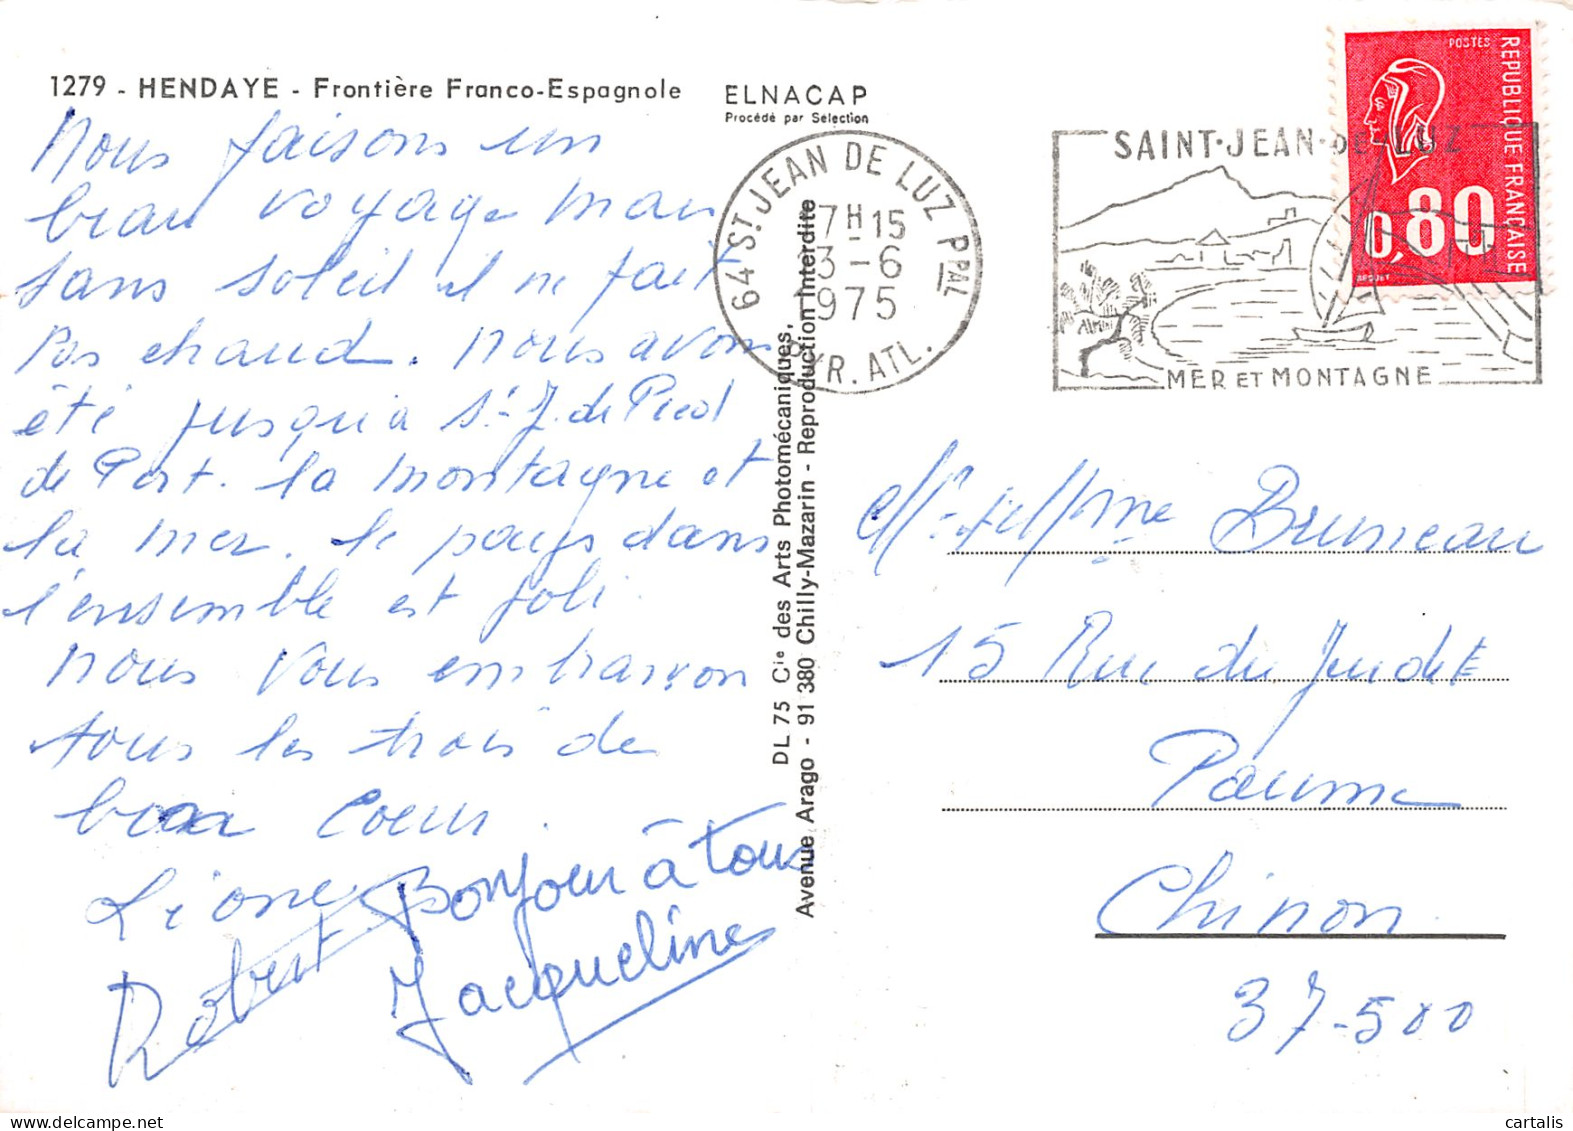 1279 - HENDAYE - Frontière Franco-Espagnole
ELNACAP
Procédé par Sélection
Nous faisons un
beau voyage mais
sans soleil il ne fait
pas chaud. nous avons
été jusqu'à St. J. de Pied
de Port. la montagne et
la mer. le pays dans
l'ensemble est joli
nous vous embrasson
tous les trois de
bon coeur.
Lione
Robert
Bonjour à tous
Jacqueline
DL 75 Cie des Arts Photomécaniques,
Avenue Arago - 91 380 Chilly-Mazarin - Reproduction Interdite
64 ST JEAN DE LUZ PPAL
17H-15
3-6
1975
PYR. ATL.
SAINT-JEAN-DE-LUZ
MER ET MONTAGNE
POSTES
REPUBLIQUE FRANÇAISE
0,80
Mr et Mme Bruneau
15 Rue du
Chinon
37-500
cartalis.com